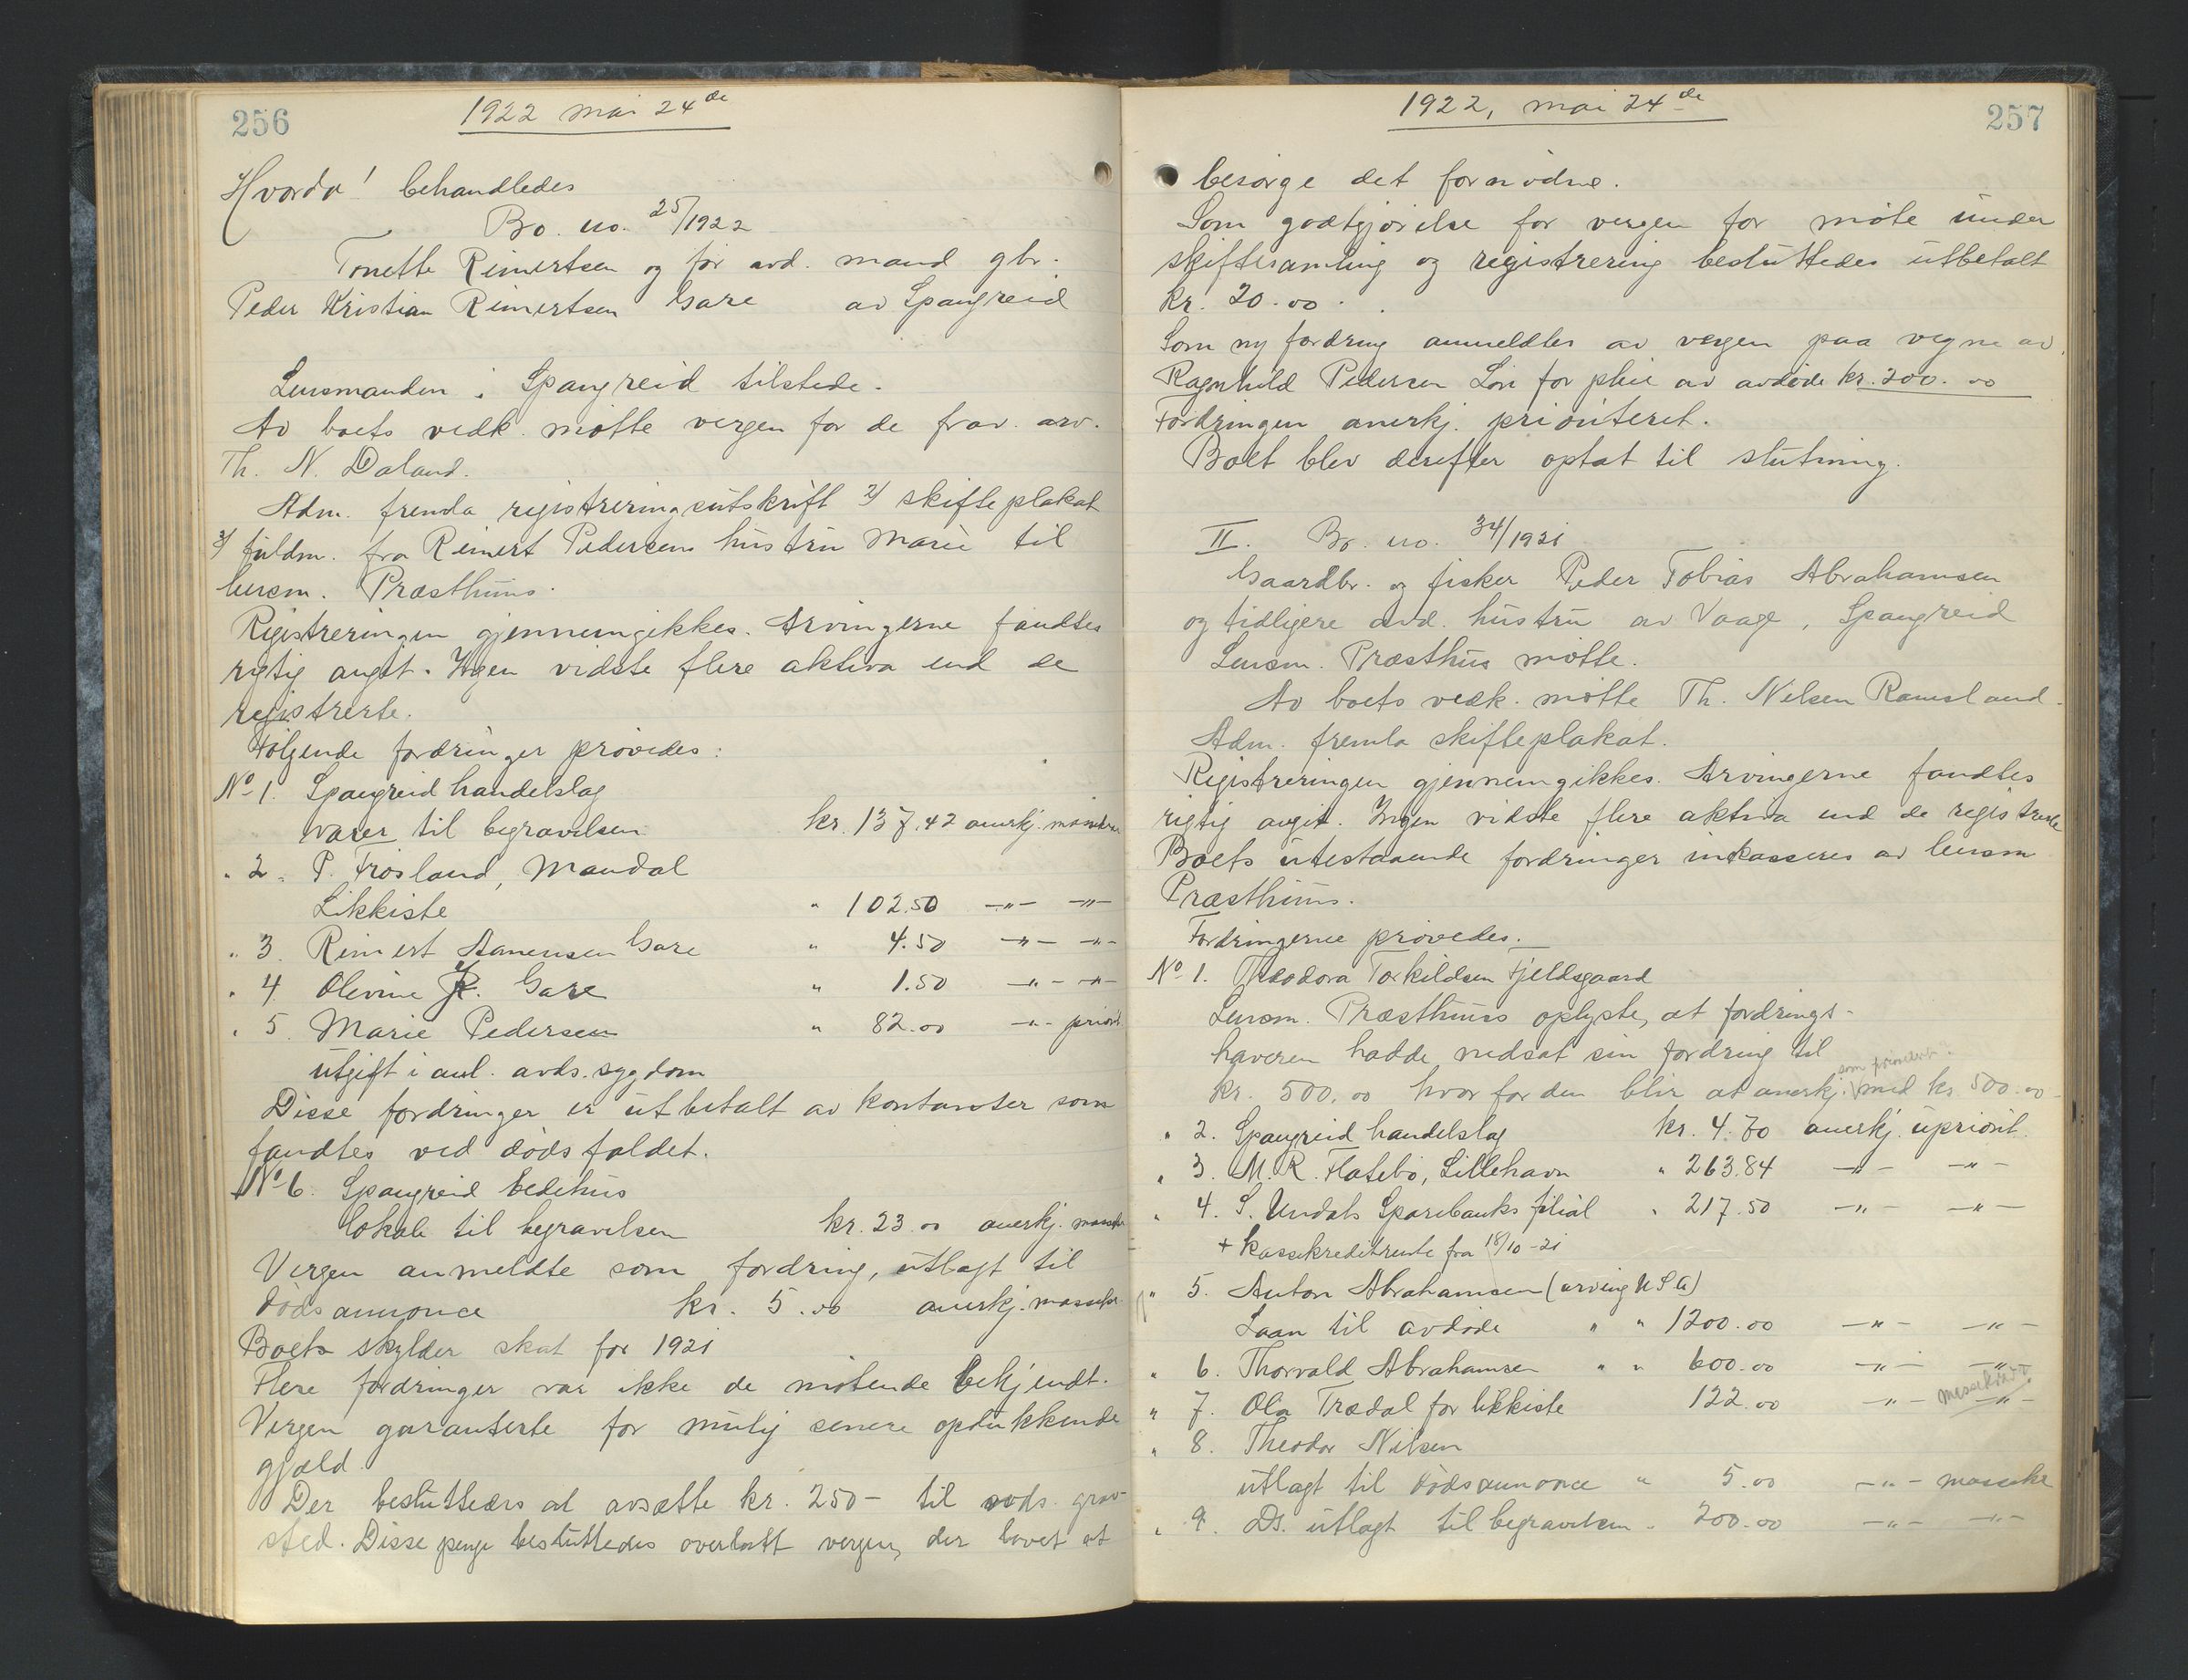 256
1922 mai 24de
Hvorda! behandledes
Bo. no. 25/1922
Tonette Reinertsen og før avd. mand gbr.
Peder Kristian Reinertsen Gare av Spangreid
Lensmanden i Spangreid tilstede.
Av boets vedk. møtte vergen for de frav. arv.
Th. N. Daland.
Adm. fremla registreringsutskrift 2/ skifteplakat
3/ fuldm. fra Reinert Pedersens hustru Marie til
lensm. Præsthuus.
Registreringen gjennemgikkes. Arvingerne fandtes
rigtig angit. Ingen vidste flere aktiva end de
registrerte.
Følgende fordringer prøvedes:
No 1. Spangreid handelslag
varer til begravelsen kr. 137.42 anerkj. massekr.
" 2. P. Frøsland, Mandal
Likkiste " 102.50 —"— —"—
" 3. Reinert Aanensen Gare " 4.50 —"— —"—
" 4 Olevine R. Gare " 1.50 —"— —"—
" 5. Marie Pedersen " 82.00 —"— priorit.
utgift i anl. avds. sygdom
Disse fordringer er utbetalt av kontanter som
fandtes ved dødsfaldet.
No 6. Spangreid bedehus
lokale til begravelsen kr. 23.00 anerkj. massekr.
Vergen anmeldte som fordring, utlagt til
dødsannonce kr. 5.00 anerkj. massekr.
Boets skylder skat for 1921
Flere fordringer var ikke de møtende bekjendt.
Vergen garanterte for mulig senere opdukkende
gjæld.
Der besluttedes at avsætte kr. 250- til avds. grav-
sted. Disse penge besluttedes overlatt vergen, der lovet at
257
1922, mai 24de
besørge det fornødne.
Som godtgjørelse for vergen for møte under
skiftesamling og registrering besluttedes utbetalt
kr. 20.00.
Som ny fordring anmeldtes av vergen paa vegne av
Ragnhild Pedersen Løn for pleie av avdøde kr. 200.00
Fordringen anerkj. prioriteret.
Boet blev derefter optat til slutning.
II. Bo. no. 34/1921
Gaardbr. og fisker Peder Tobias Abrahamsen
og tidligere avd. hustru av Vaage, Spangreid
Lensm. Præsthus møtte.
Av boets vedk. møtte Th. Nilsen Ramsland.
Adm. fremla skifteplakat.
Registreringen gjennemgikkes. Arvingerne fandtes
rigtig angit. Ingen vidste flere aktiva end de registrerte
Boets utestaaende fordringer inkasseres av lensm
Præsthuus.
Fordringerne prøvedes.
No 1. Theodora Torkildsen Fjeldsgaard
Lensm. Præsthuus oplyste, at fordrings-
haveren hadde nedsat sin fordring til
kr. 500.00 hvorfor den blir at anerkj. som prioritert med kr 500.00
" 2. Spangreid handelslag kr. 4.70 anerkj. upriorit.
" 3. M. R. Flatebø, Lillehavn " 263.84 —"— —"—
" 4. S. Undals Sparebanks filial " 217.50 —"— —"—
+ kassekreditrente fra 18/10-21
" 5. Anton Abrahamsen (arving U S A)
Laan til avdøde " " 1200.00 —"— —"—
" 6. Thorvald Abrahamsen " " 600.00 —"— —"—
" 7. Ola Trædal for likkiste 122.00 —"— —"—
" 8. Theodor Nilsen
utlagt til dødsannonce " 5.00 —"— massekr
" 9. Ds. utlagt til begravelsen " 200.00 —"— —"—